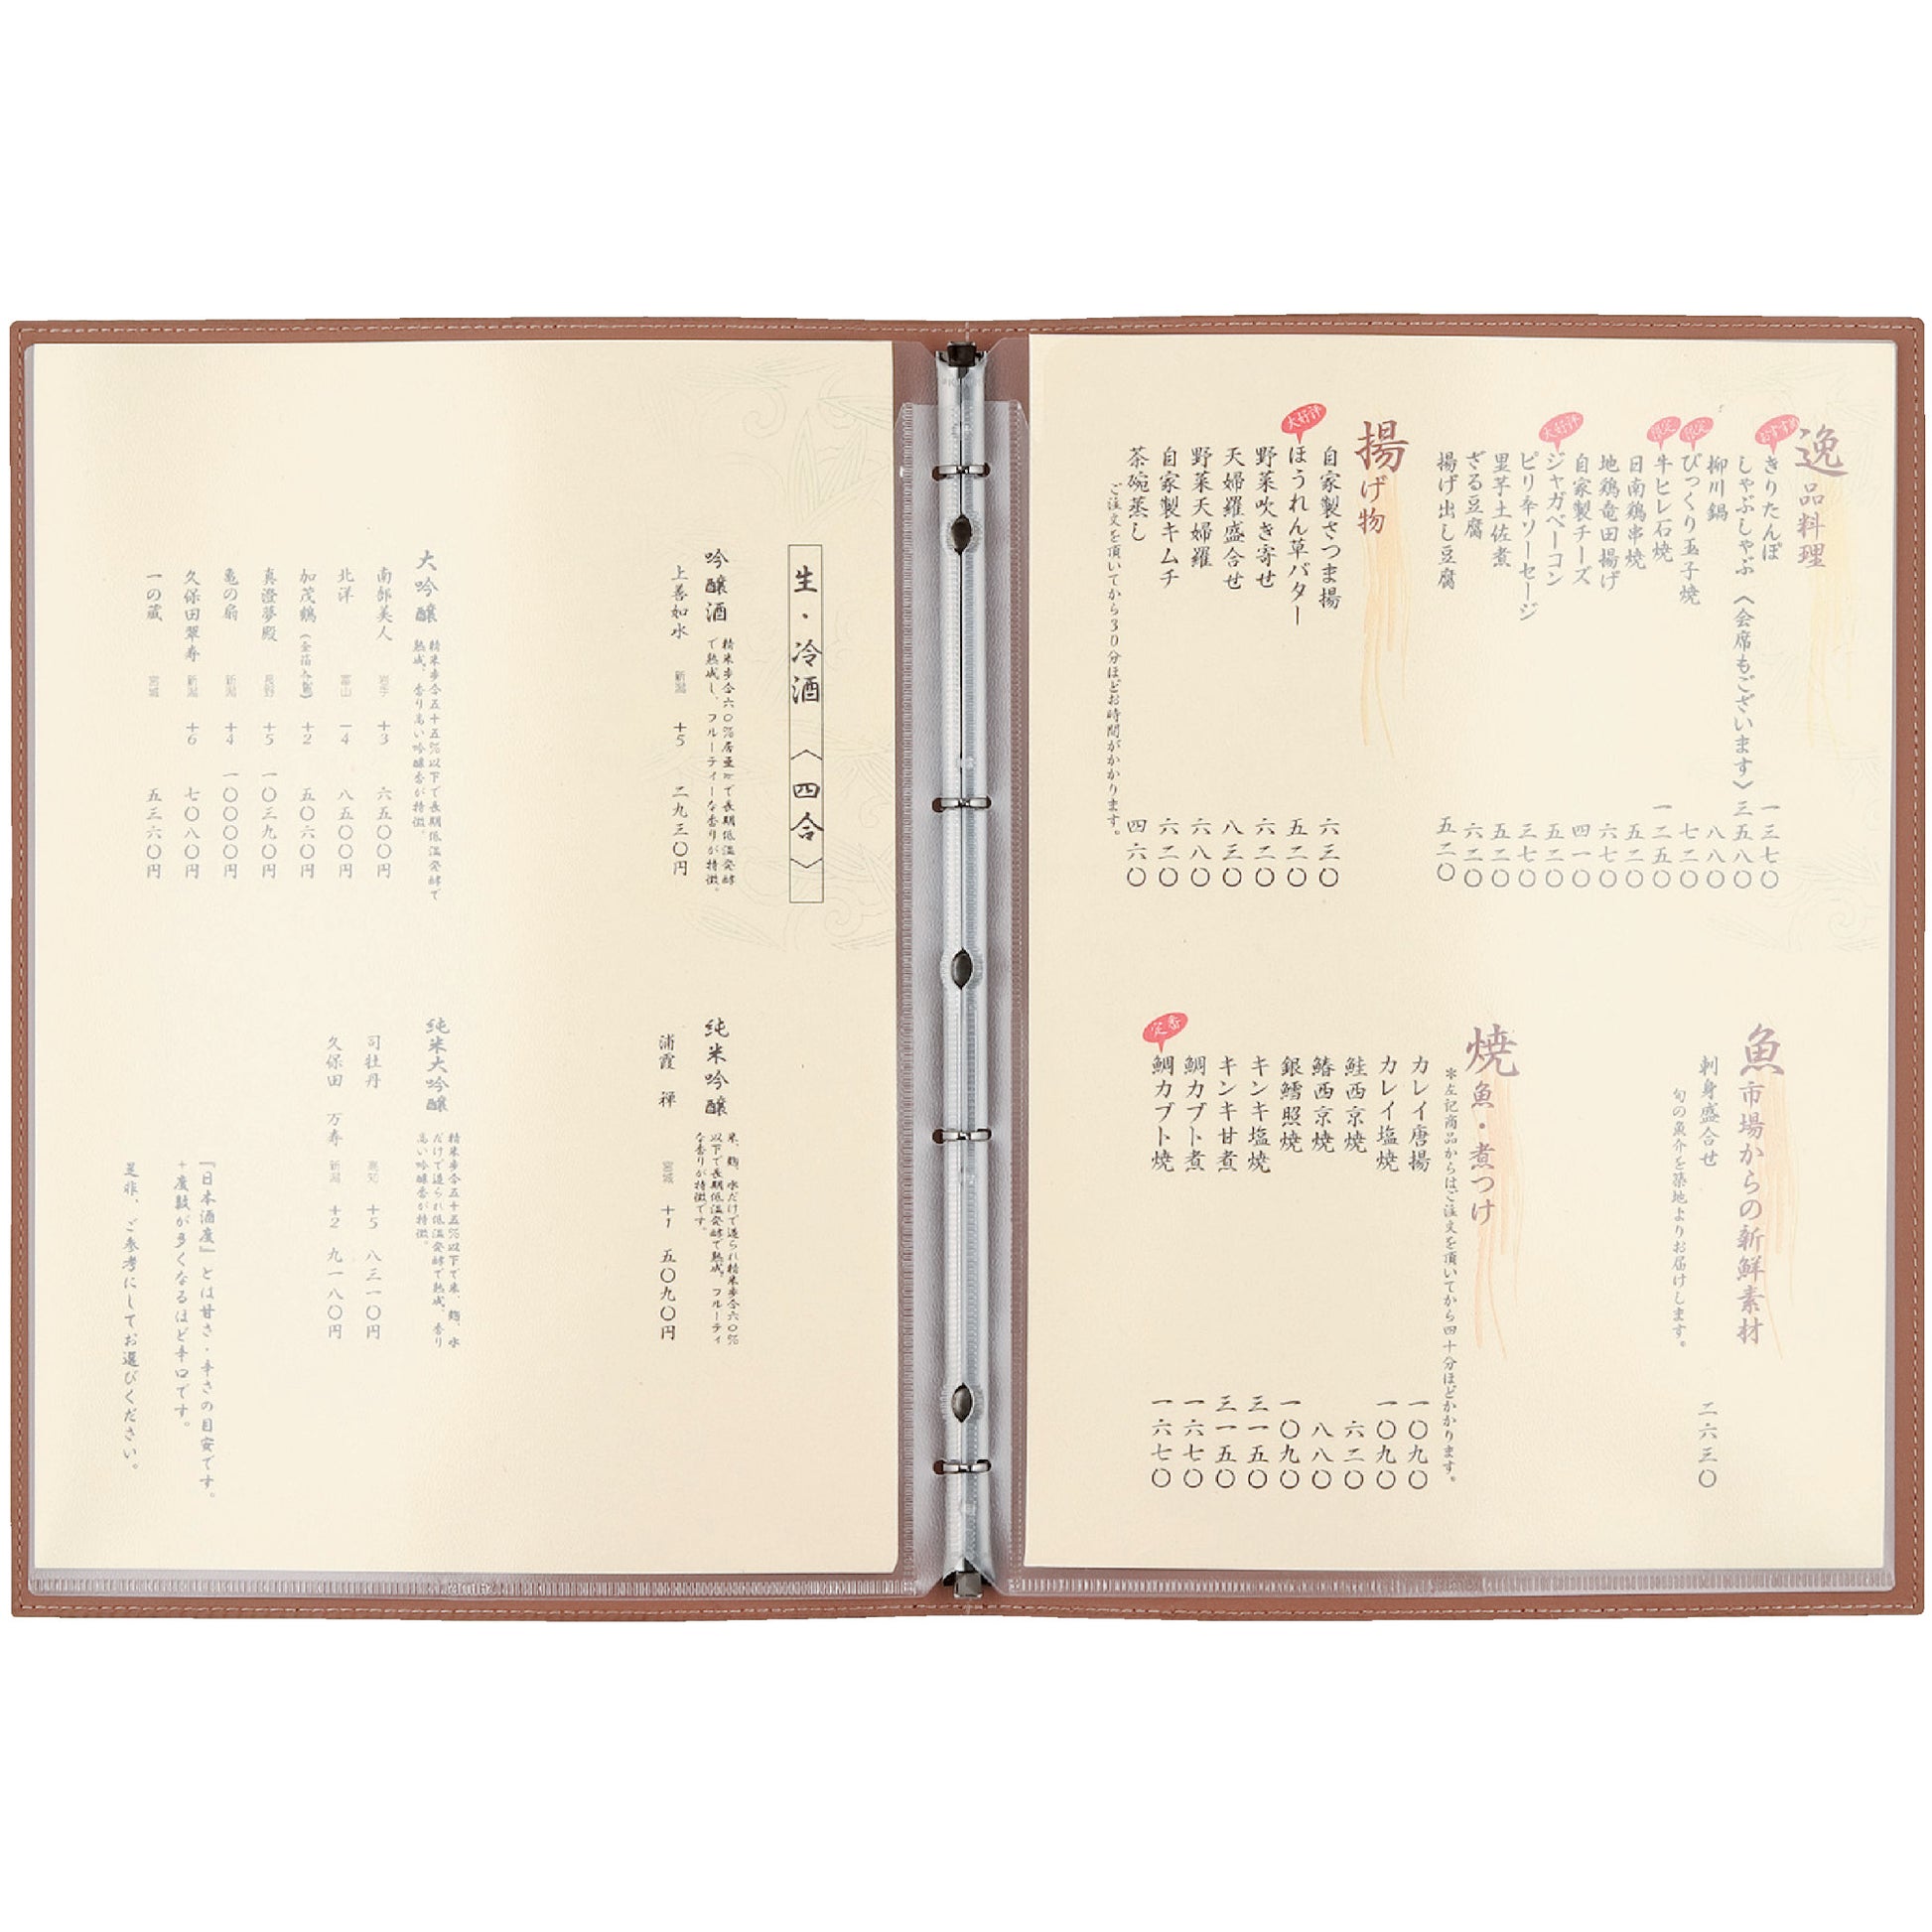 逸品料理
おすすめ
きりたんぽ 一三七〇
しゃぶしゃぶ〈会席もございます〉 三五八〇
柳川鍋 八八〇
限定
びっくり玉子焼 七二〇
限定
牛ヒレ石焼 一二五〇
日南鶏串焼 五二〇
地鶏竜田揚げ 六七〇
自家製チーズ 四一〇
大好評
ジャガベーコン 五二〇
ピリ辛ソーセージ 三七〇
里芋土佐煮 五二〇
ざる豆腐 六二〇
揚げ出し豆腐 五二〇
揚げ物
自家製さつま揚 六三〇
大好評
ほうれん草バター 五二〇
野菜吹き寄せ 六二〇
天婦羅盛合せ 八三〇
野菜天婦羅 六八〇
自家製キムチ 六二〇
茶碗蒸し 四六〇
ご注文を頂いてから30分ほどお時間がかかります。
魚市場からの新鮮素材
刺身盛合せ 二六三〇
旬の魚介を築地よりお届けします。
焼魚・煮つけ
＊左記商品からはご注文を頂いてから四十分ほどかかります。
カレイ唐揚 一〇九〇
カレイ塩焼 一〇九〇
鮭西京焼 六二〇
鰆西京焼 八八〇
銀鱈照焼 一〇九〇
キンキ塩焼 三一五〇
キンキ甘煮 三一五〇
鯛カブト煮 一六七〇
定番
鯛カブト焼 一六七〇
生・冷酒〈四合〉
吟醸酒
精米歩合六〇％居亜ｋで長期低温発酵
で熟成し、フルーティーな香りが特徴。
上善如水 新潟 +5 二九三〇円
大吟醸
精米歩合五十五％以下で長期低温発酵で
熟成。香り高い吟醸香が特徴。
南部美人 岩手 +3 六五〇〇円
北洋 富山 −4 八五〇〇円
加茂鶴（金箔入り） +2 五〇六〇円
真澄夢殿 長野 +5 一〇三九〇円
亀の翁 新潟 +4 一〇〇〇〇円
久保田翠寿 新潟 +6 七〇八〇円
一の蔵 宮城 五三六〇円
純米吟醸
米、麹、水だけで造られ精米歩合六〇％
以下で長期低温発酵で熟成。フルーティ
な香りが特徴です。
浦霞 禅 宮城 +1 五〇九〇円
純米大吟醸
精米歩合五十五％以下で米、麹、水
だけで造られ低温発酵で熟成。香り
高い吟醸香が特徴。
司牡丹 高知 +5 八三一〇円
久保田 万寿 新潟 +2 九一八〇円
「日本酒度」とは甘さ・辛さの目安です。
+度数が多くなるほど辛口です。
是非、ご参考にしてお選びください。